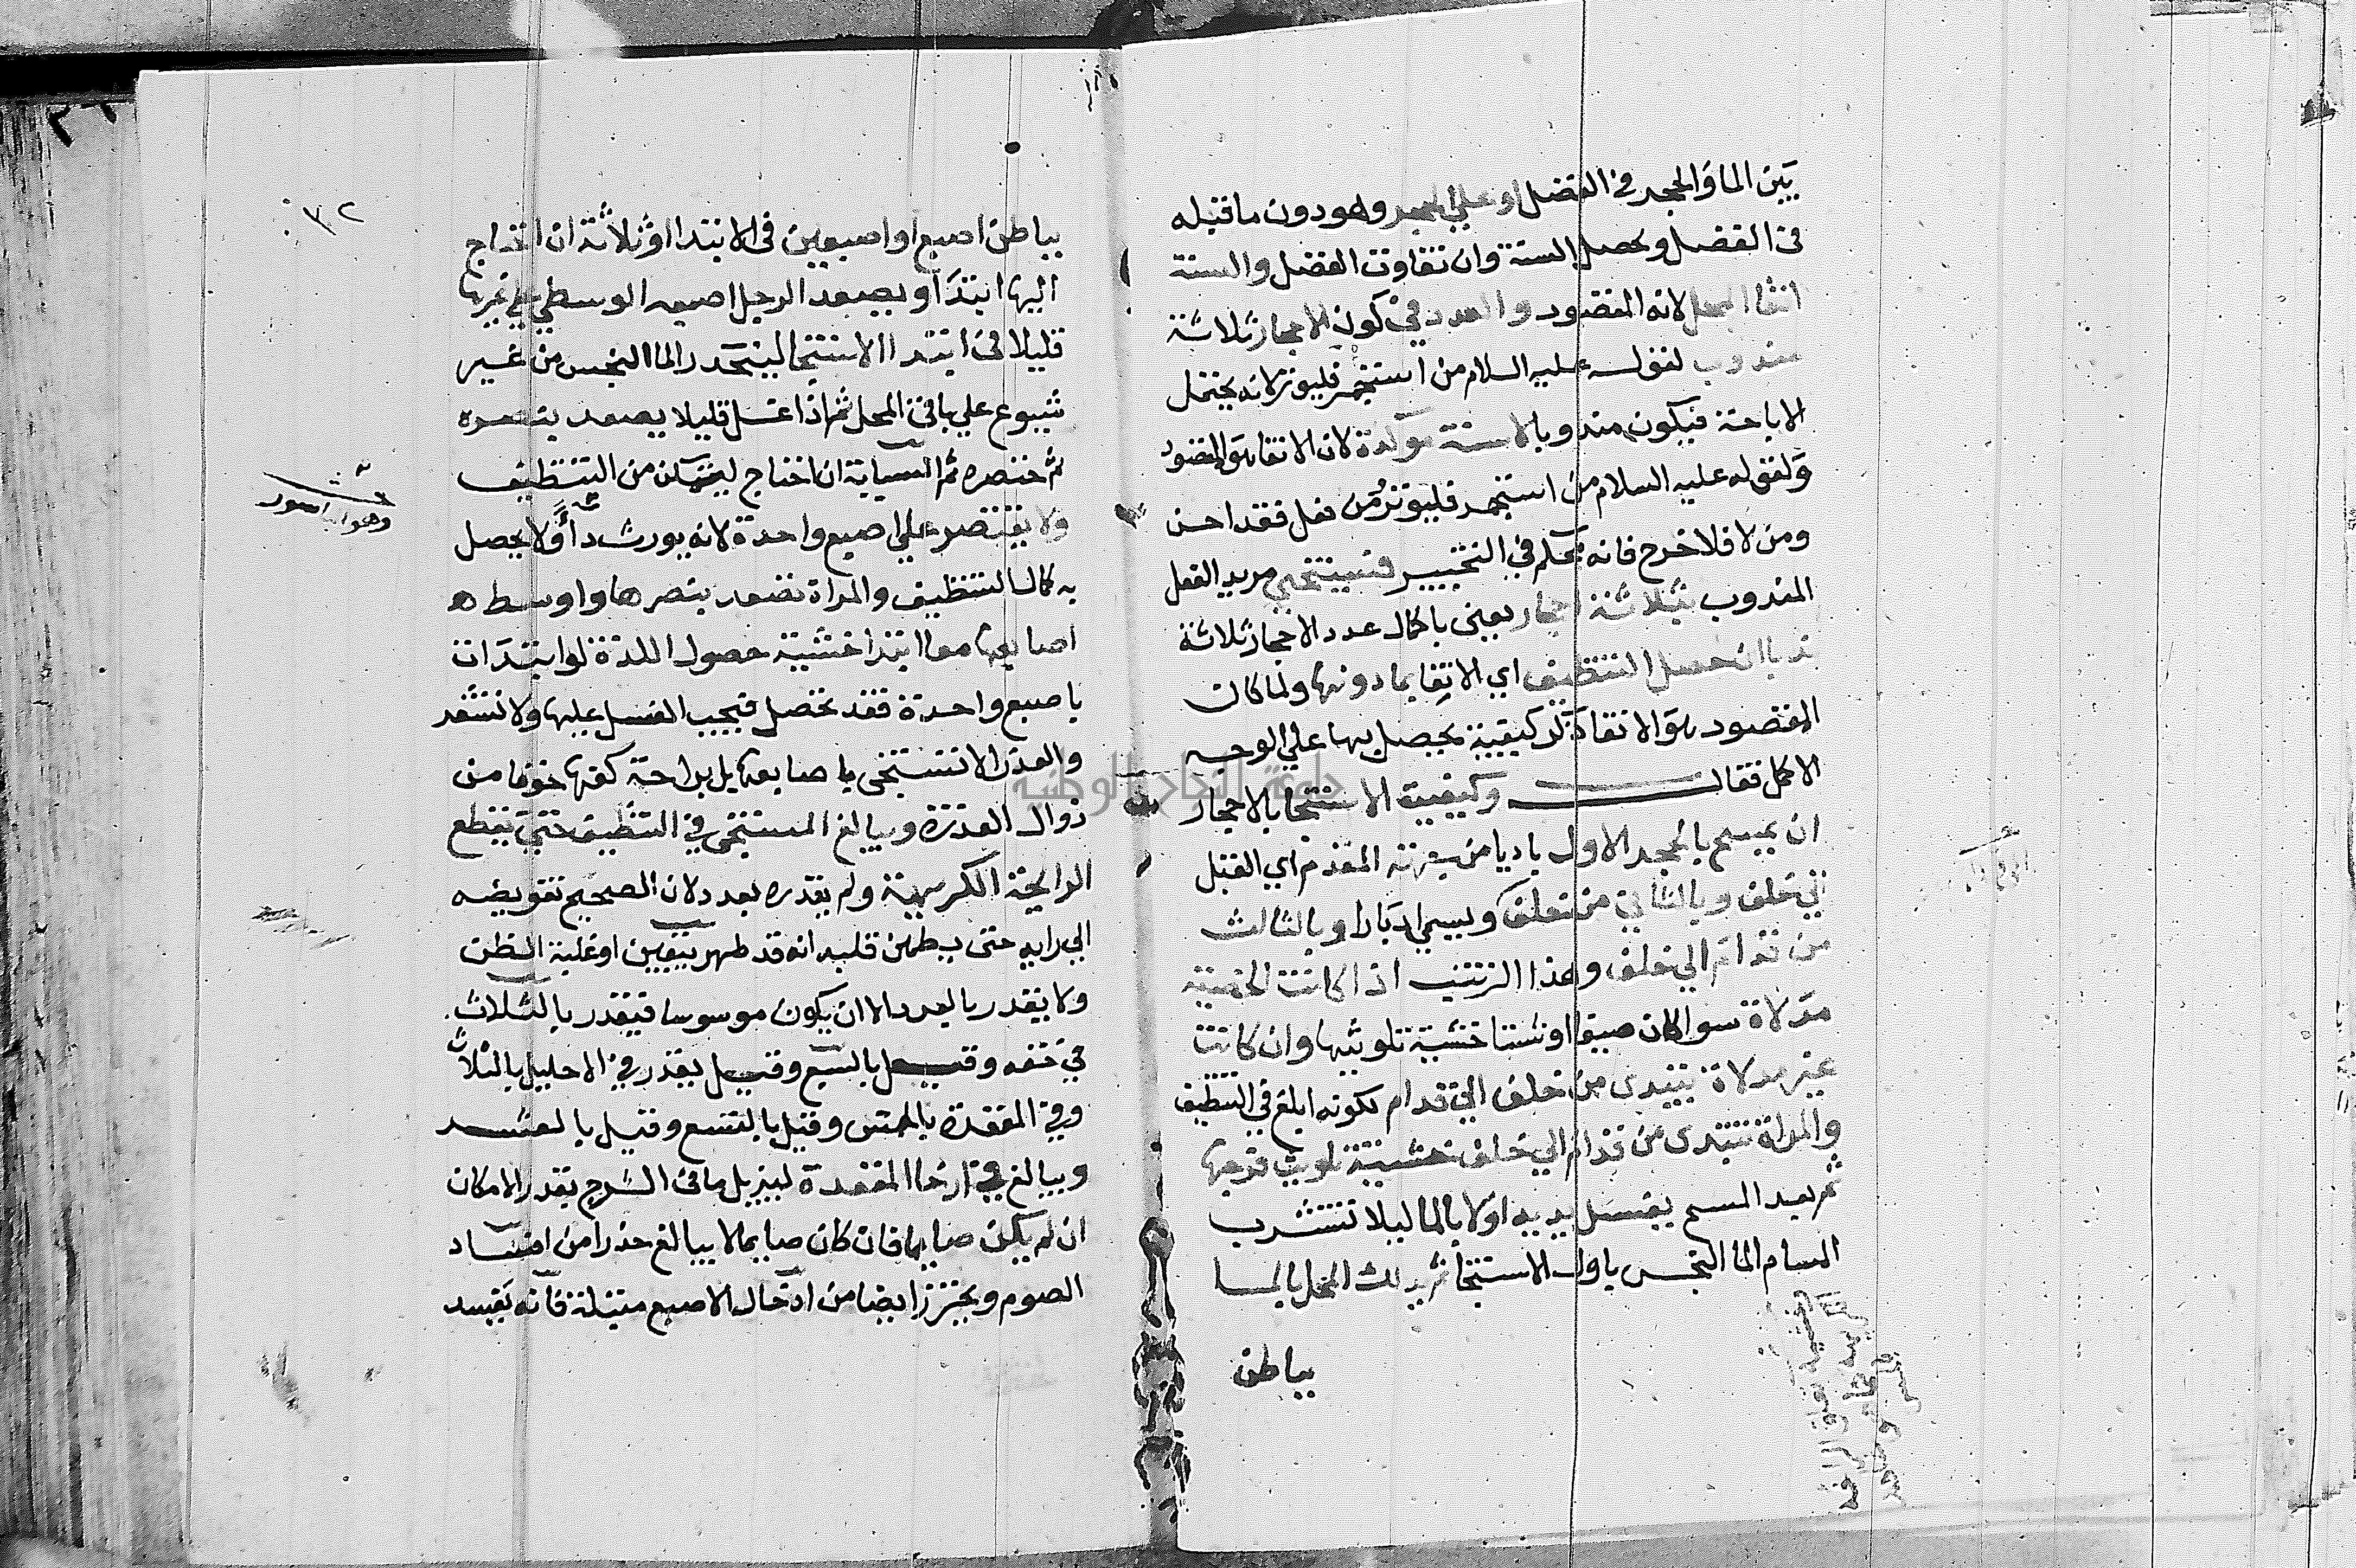 بين الما والحجر في الفضل او علي الحجر وهو دون ما قبله
في الفضل ويحصل السنة وان تفاوت الفضل والسنة
انقا المحل لانه المقصود والعدد في كون الاحجار ثلاثة
مندوب لقوله عليه السلام من استجمر فليوتر لانه يحتمل
الاباحة فيكون مندوبا لا سنة موكدة لان الانقا هو المقصود
ولقوله عليه السلام من استجمر فليوتر من فعل فقد احسن
ومن لا فلا حرج فانه محكم في التخيير فيستنجي مريد الفعل
المندوب بثلاثة احجار يعني باكمال عدد الاحجار ثلاثة
ندبا ان حصل التنظيف اي الانقا بما دونها ولما كان
المقصود هو الانقا ذكر كيفية يحصل بها علي الوجه
الاكمل فقال وكيفية الاستنجا بالاحجار
ان يمسح بالحجر الاول باديا من جهة المقدم اي القبل
الي خلف وبالثاني من خلف ويسمي ادبارا وبالثالث
من قدام الي خلف وهذا الترتيب اذا كانت الخصية
مدلاة سوا كان صيفا او شتا خشية تلويثها وان كانت
غير مدلاة يبتدي من خلف الي قدام لكونه ابلغ في التنظيف
والمراة تبتدي من قدام الي خلف خشية تلويث فرجها
ثم بعد المسح يغسل يديه اولا بالما ليلا تتشرب
المسام الما النجس باول الاستنجا ثم يدلك المحل بالما
بباطن
٣٢
بباطن اصبع او اصبعين في الابتدا او ثلاثة ان احتاج
اليها ابتدا ويصعد الرجل اصبعه الوسطي علي غيرها
قليلا في ابتدا الاستنجا لينحدر الما النجس من غير
شيوع علي باقي المحل ثم اذا غسل قليلا يصعد بنصره
ثم خنصره ثم السبابة ان احتاج ليتمكن من التنظيف
ولا يقتصر علي اصبع واحدة لانه يورث دأ ولا يحصل
به كمال التنظيف والمراة تصعد بنصرها واوسط
اصابعها معا ابتدا خشية حصول اللذة لو ابتدات
باصبع واحدة فقد تحصل فيجب الغسل عليها ولا تشعر
والعذرا لا تستنجي باصابعها بل براحة كفها خوفا من
زوال العذرة ويبالغ المستنجي في التنظيف حتي يقطع
الرايحة الكريهة ولم يقدره بعدد لان الصحيح تفويضه
الي رايه حتي يطمن قلبه انه قد طهر بيقين او غلبة الظن
ولا يقدر بالعدد الا ان يكون موسوسا فيقدر بالثلاث
في حقه وقيل بالسبع وقيل يقدر في الاحليل بالثلاث
وفي المقعدة بالخمس وقيل بالتسع وقيل بالعشر
ويبالغ في ارخا المقعدة ليزيل ما في الشرج بقدر الامكان
ان لم يكن صايما فان كان صايما لا يبالغ حذرا من افساد
الصوم ويحترز ايضا من ادخال الاصبع مبتلة فانه يفسد
جامعة النجاح الوطنية